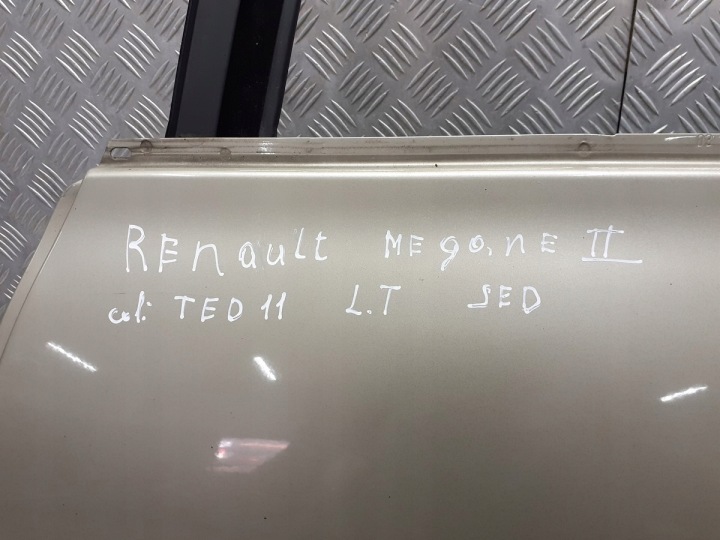 REnault MEganE II
col: TED11 L.T SED